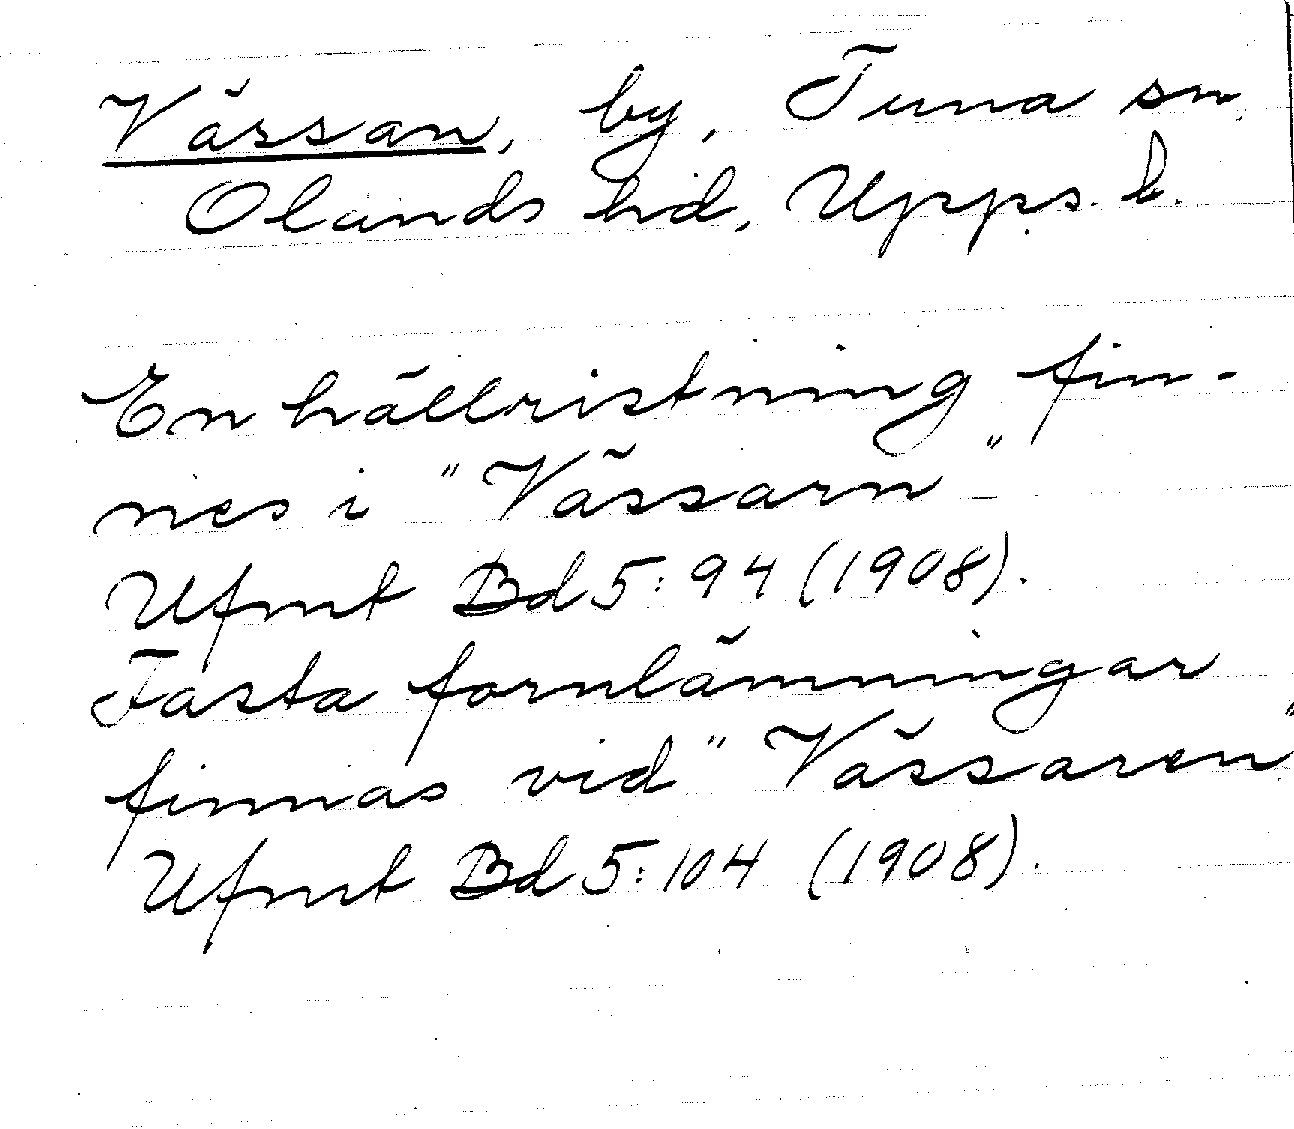 Värsan, by, Tuna sn,
Olands hd, Upps. l.
En hällristning fin-
nes i "Vässarn"
Ufmt Bd 5:94 (1908).
Fasta fornlämningar
finnas vid "Vässaren"
Ufmt Bd 5:104 (1908).